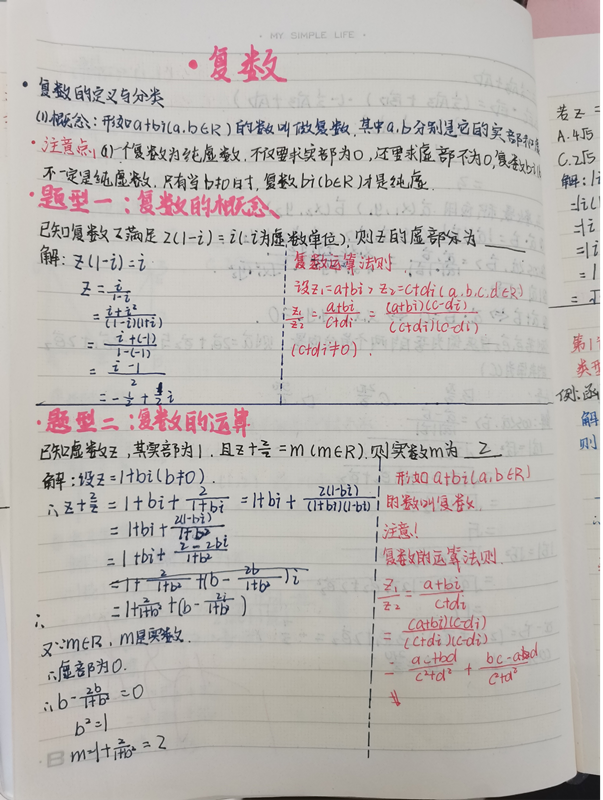 · MY SIMPLE LIFE ·
·复数
·复数的定义与分类
(1)概念:形如a+bi(a,b∈R)的数叫做复数,其中a,b分别是它的实部和
·注意点:(1)一个复数为纯虚数,不仅要求实部为0,还要求虚部不为0,复数bi
不一定是纯虚数,只有当b≠0时,复数bi(b∈R)才是纯虚.
·题型一:复数的概念
已知复数z满足z(1-i)=i(i为虚数单位),则z的虚部为____
解:z(1-i)=i
z=i/(1-i)
=(i+i²)/((1-i)(1+i))
=(i+(-1))/(1-(-1))
=(i-1)/2
=-1/2+1/2i
复数运算法则
设z₁=a+bi,z₂=c+di(a,b,c,d∈R)
z₁/z₂=(a+bi)/(c+di)=((a+bi)(c-di))/((c+di)(c-di))
(c+di≠0).
·题型二:复数的运算
已知虚数z,其实部为1,且z+2/z=m(m∈R),则实数m为 2
解:设z=1+bi(b≠0).
∴z+2/z=1+bi+2/(1+bi)=1+bi+(2(1-bi))/((1+bi)(1-bi))
=1+bi+(2(1-bi))/(1+b²)
=1+bi+(2-2bi)/(1+b²)
=1+2/(1+b²)+(b-2b/(1+b²))i
∴=1+2/(1+b²)+(b-2i/(1+b²))
又∵m∈R,m是实数.
∴虚部为0.
∴b-2b/(1+b²)=0
b²=1
m=1+2/(1+b²)=2
形如a+bi(a,b∈R)
的数叫复数.
注意!
复数的运算法则.
z₁/z₂=(a+bi)/(c+di)
=((a+bi)(c-di))/((c+di)(c-di))
=(ac+bd)/(c²+d²)+(bc-ad)/(c²+d²)
B
若z=
A.4√5
C.2√5
解:|i
=|i(
=|i
=|i
=1
第1
类型
例:函
解
则